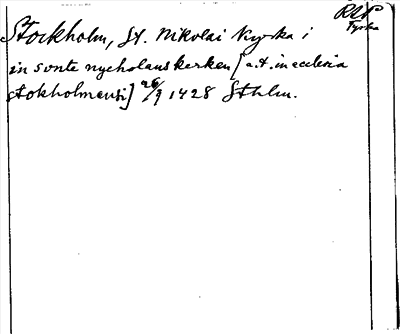 RAP
Tyska
Stockholm, St. Nikolai kyrka i
in sonte nycholauskerken [a.t. in ecclesia
stokholmensi] 26/9 1428 Sthlm.